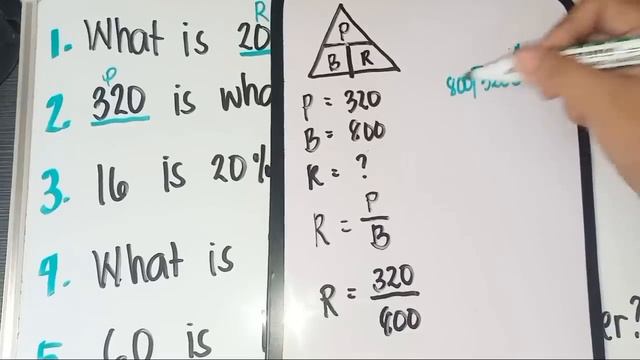 R
1. What is 20
P
2. 320 is wha
3. 16 is 20%
4. What is
5. 60 is
P
B R
P = 320
B = 800
R = ?
R = P
B
R = 320
800
800
er?